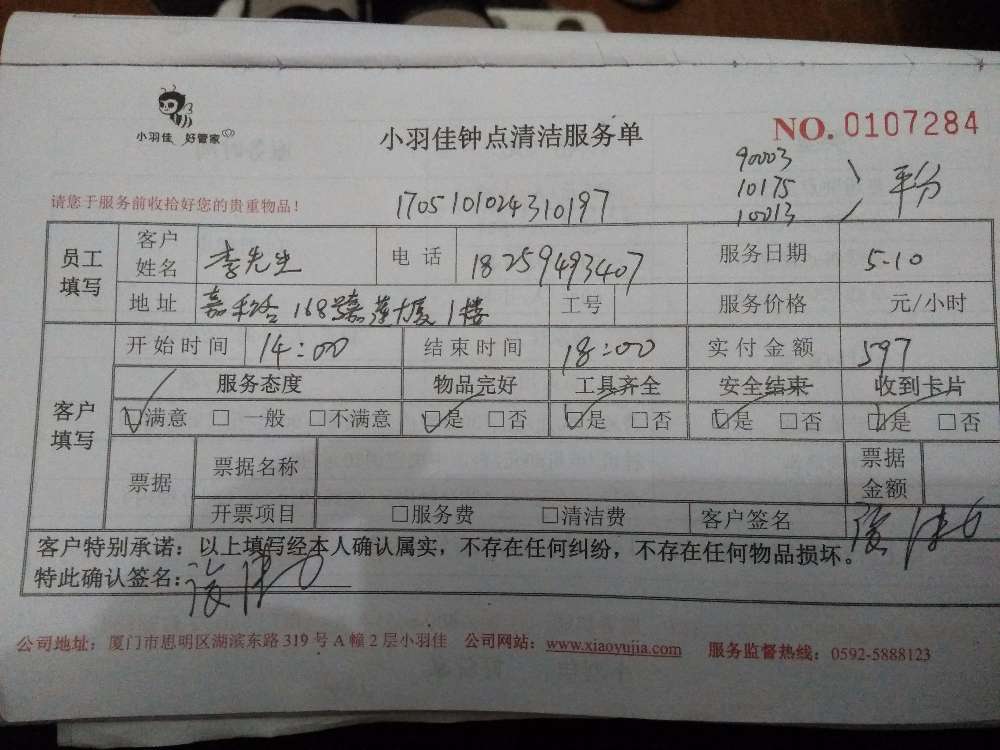 小羽佳 好管家
小羽佳钟点清洁服务单
NO. 0107284
90003
10175
10013
平分
请您于服务前收拾好您的贵重物品!
170510102431 0197
员工填写 客户姓名 李先生 电话 18259493407 服务日期 5-10
地址 嘉禾路 168号嘉莲大厦1楼 工号 服务价格 元/小时
客户填写 开始时间 14:00 结束时间 18:00 实付金额 597
服务态度 物品完好 工具齐全 安全结束 收到卡片
☑满意 □一般 □不满意 ☑是 □否 ☑是 □否 ☑是 □否 ☑是 □否
票据 票据名称 票据金额
开票项目 □服务费 □清洁费 客户签名
客户特别承诺:以上填写经本人确认属实,不存在任何纠纷,不存在任何物品损坏。
特此确认签名:
公司地址:厦门市思明区湖滨东路 319 号 A 幢 2 层小羽佳 公司网站:www.xiaoyujia.com 服务监督热线:0592-5888123